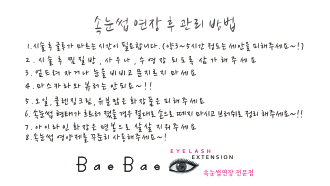 속눈썹 연장 후 관리 방법
1.시술 후 글루가 마르는 시간이 필요합니다.(약3~5시간 정도는 세안을 피해주세요~!)
2. 시술 후 찜질방, 사우나, 수영장 되도록 삼가해주세요
3. 엎드려 자거나 눈을 비비고 문지르지 마세요
4. 마스카라와 뷰러는 안되요~!!
5. 오일, 클렌징크림, 유분많은 화장품은 피해주세요
6. 속눈썹 형태가 흐트러졌을 경우 절대로 손으로 떼지 마시고 브러쉬로 정리해주세요~!!
7. 아이라인 화장은 면봉으로 살살 지워주세요
8.속눈썹 영양제를 꾸준히 사용해주세요~!
Bae Bae
EYELASH
EXTENSION
속눈썹연장 전문점